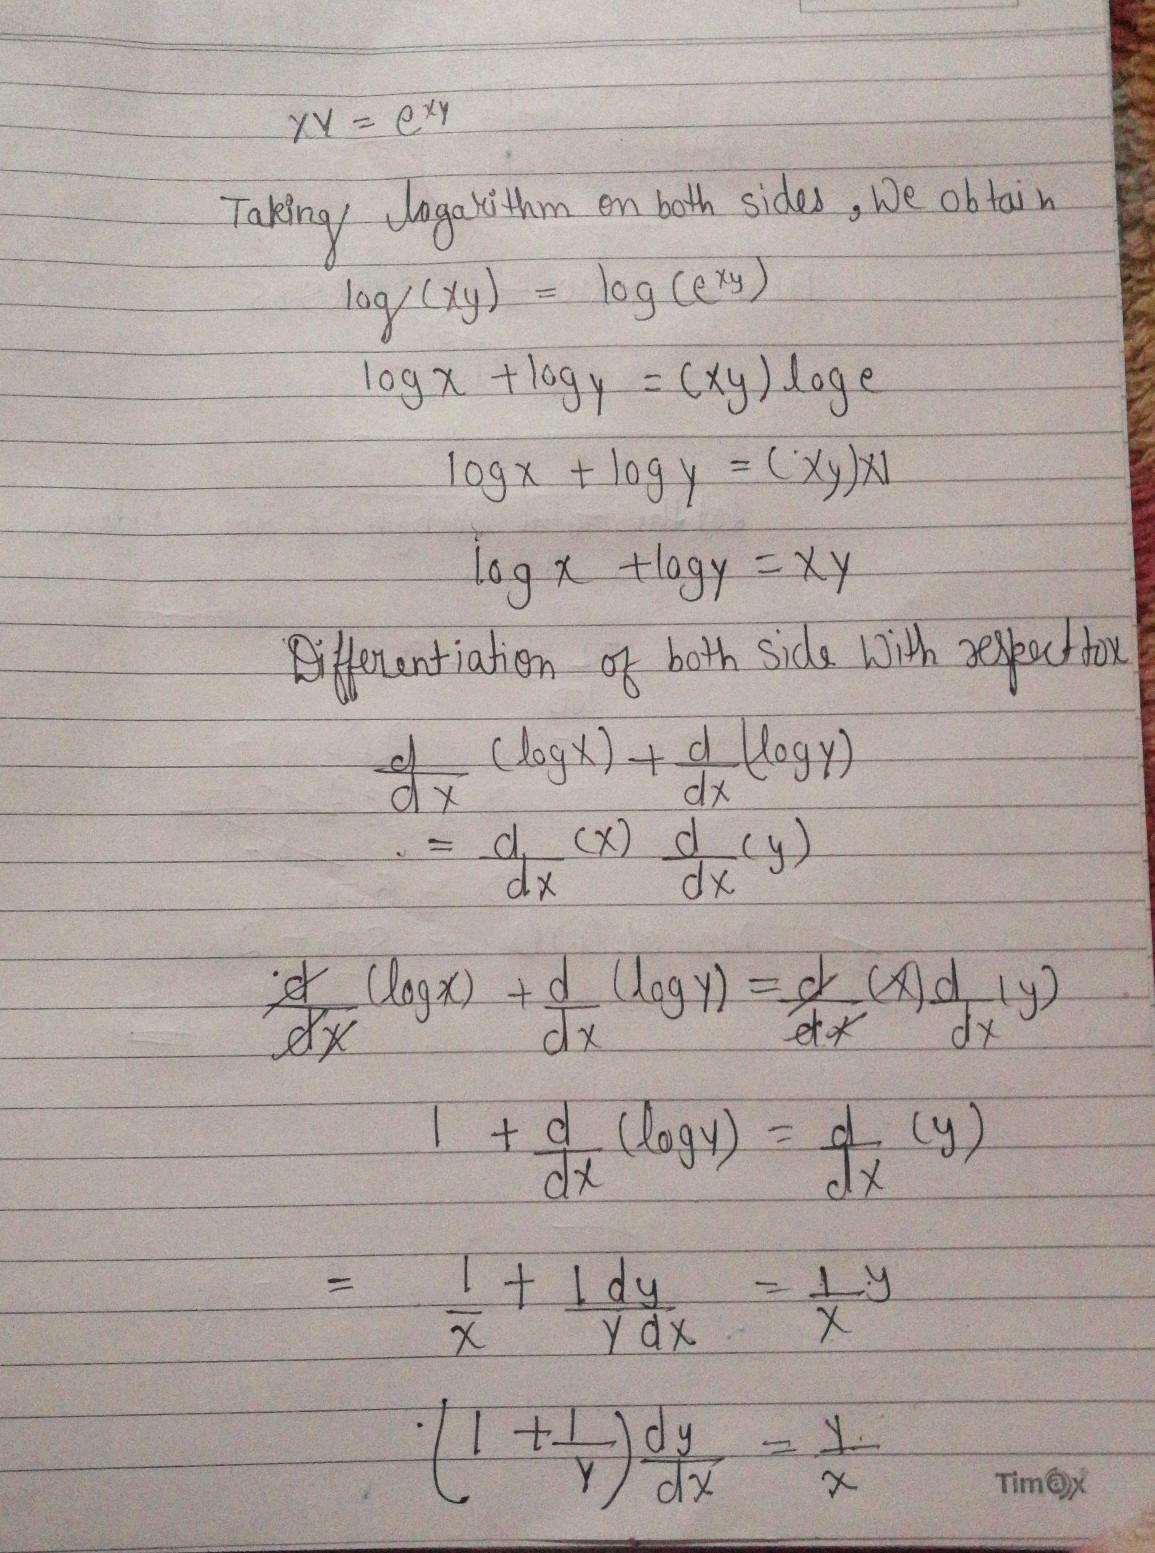 xy = e^xy
Taking logarithm on both sides, We obtain
log (xy) = log (e^xy)
log x + log y = (xy) log e
log x + log y = (xy)x1
log x + log y = xy
Differentiation of both side With respect to x
d/dx (log x) + d/dx (log y)
= d/dx (x) d/dx (y)
d/dx (log x) + d/dx (log y) = d/dx (x) d/dx (y)
1 + d/dx (log y) = d/dx (y)
= 1/x + 1 dy/y dx = 1/x y
(1 + 1/y) dy/dx = y/x
Timex